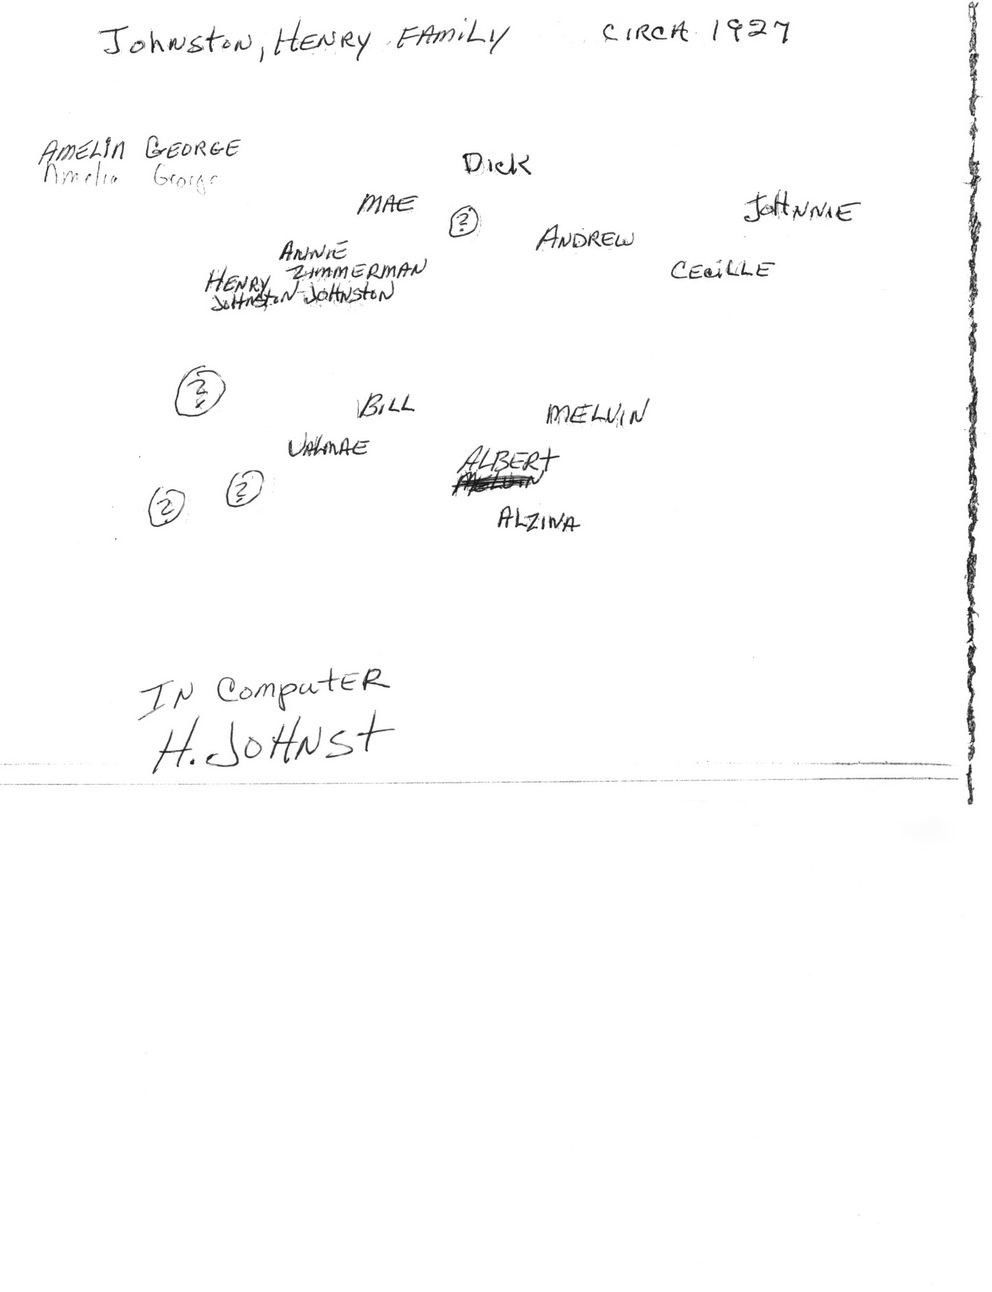 Johnston, HENRY FAMILY CIRCA 1927
AMELIA GEORGE
Amelia George
Dick
MAE
?
JOHNNIE
ANDREW
ANNIE
CECILLE
HENRY ZIMMERMAN
JOHNSTON JOHNSTON
?
BILL
MELVIN
VALMAE
ALBERT
MELVIN
?
?
ALZINA
IN COMPUTER
H. JOHNST